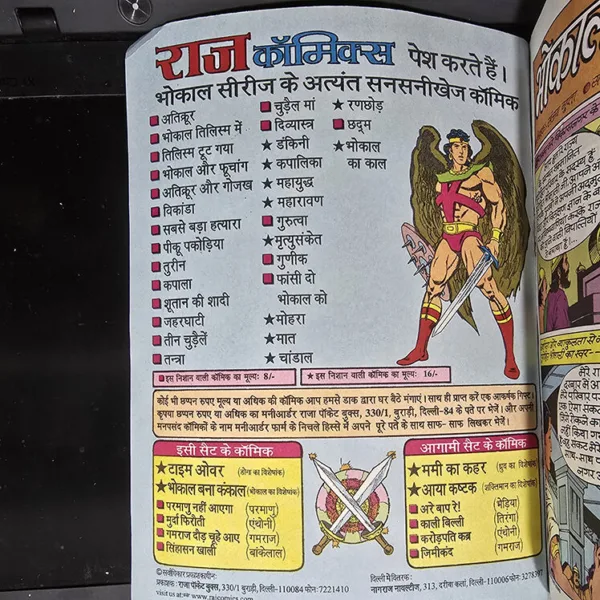 राज कॉमिक्स पेश करते हैं।
भोकाल सीरीज के अत्यंत सनसनीखेज कॉमिक
अतिक्रूर
भोकाल तिलिस्म में
तिलिस्म टूट गया
भोकाल और फूचांग
अतिक्रूर और गोजख
विकांडा
सबसे बड़ा हत्यारा
पीकू पकोड़िया
तुरीन
कपाला
शूतान की शादी
जहरघाटी
तीन चुड़ैलें
तन्त्रा
चुड़ैल मां
दिव्यास्त्र
★ डंकिनी
★ कपालिका
★ महायुद्ध
★ महारावण
गुरुत्वा
★ मृत्युसंकेत
गुणीक
फांसी दो
भोकाल को
★ मोहरा
★ मात
★ चांडाल
★ रणछोड़
छद्म
★ भोकाल
का काल
इस निशान वाली कॉमिक का मूल्य: 8/-
★ इस निशान वाली कॉमिक का मूल्य: 16/-
कोई भी छप्पन रुपए मूल्य या अधिक की कॉमिक आप हमसे डाक द्वारा घर बैठे मंगाएं। साथ ही प्राप्त करें एक आकर्षक गिफ्ट।
कृपया छप्पन रुपए या अधिक का मनीआर्डर राजा पॉकेट बुक्स, 330/1, बुराड़ी, दिल्ली-84 के पते पर भेजें। और अपनी
मनपसंद कॉमिकों के नाम मनीआर्डर फार्म के निचले हिस्से में अपने पूरे पते के साथ साफ- साफ लिखकर भेजें।
इसी सैट के कॉमिक
★ टाइम ओवर (डोगा का विशेषांक)
★ भोकाल बना कंकाल (भोकाल का विशेषांक)
परमाणु नहीं आएगा (परमाणु)
मुर्दा फिरौती (एंथोनी)
गमराज दौड़ चूहे आए (गमराज)
सिंहासन खाली (बांकेलाल)
आगामी सैट के कॉमिक
★ ममी का कहर (ध्रुव का विशेषांक)
★ आया कष्टक (शक्तिमान का विशेषांक)
अरे बाप रे! (भेड़िया)
काली बिल्ली (तिरंगा)
करोड़पति कब्र (एंथोनी)
जिमीकंद (गमराज)
© सर्वाधिकार प्रकाशकाधीन:
प्रकाशक : राजा पॉकेट बुक्स, 330/1 बुराड़ी, दिल्ली-110084 फोन: 7221410
visit us at:
दिल्ली में वितरक :
नागराज नावल्टीज, 313, दरीबा कलां, दिल्ली-110006 फोन: